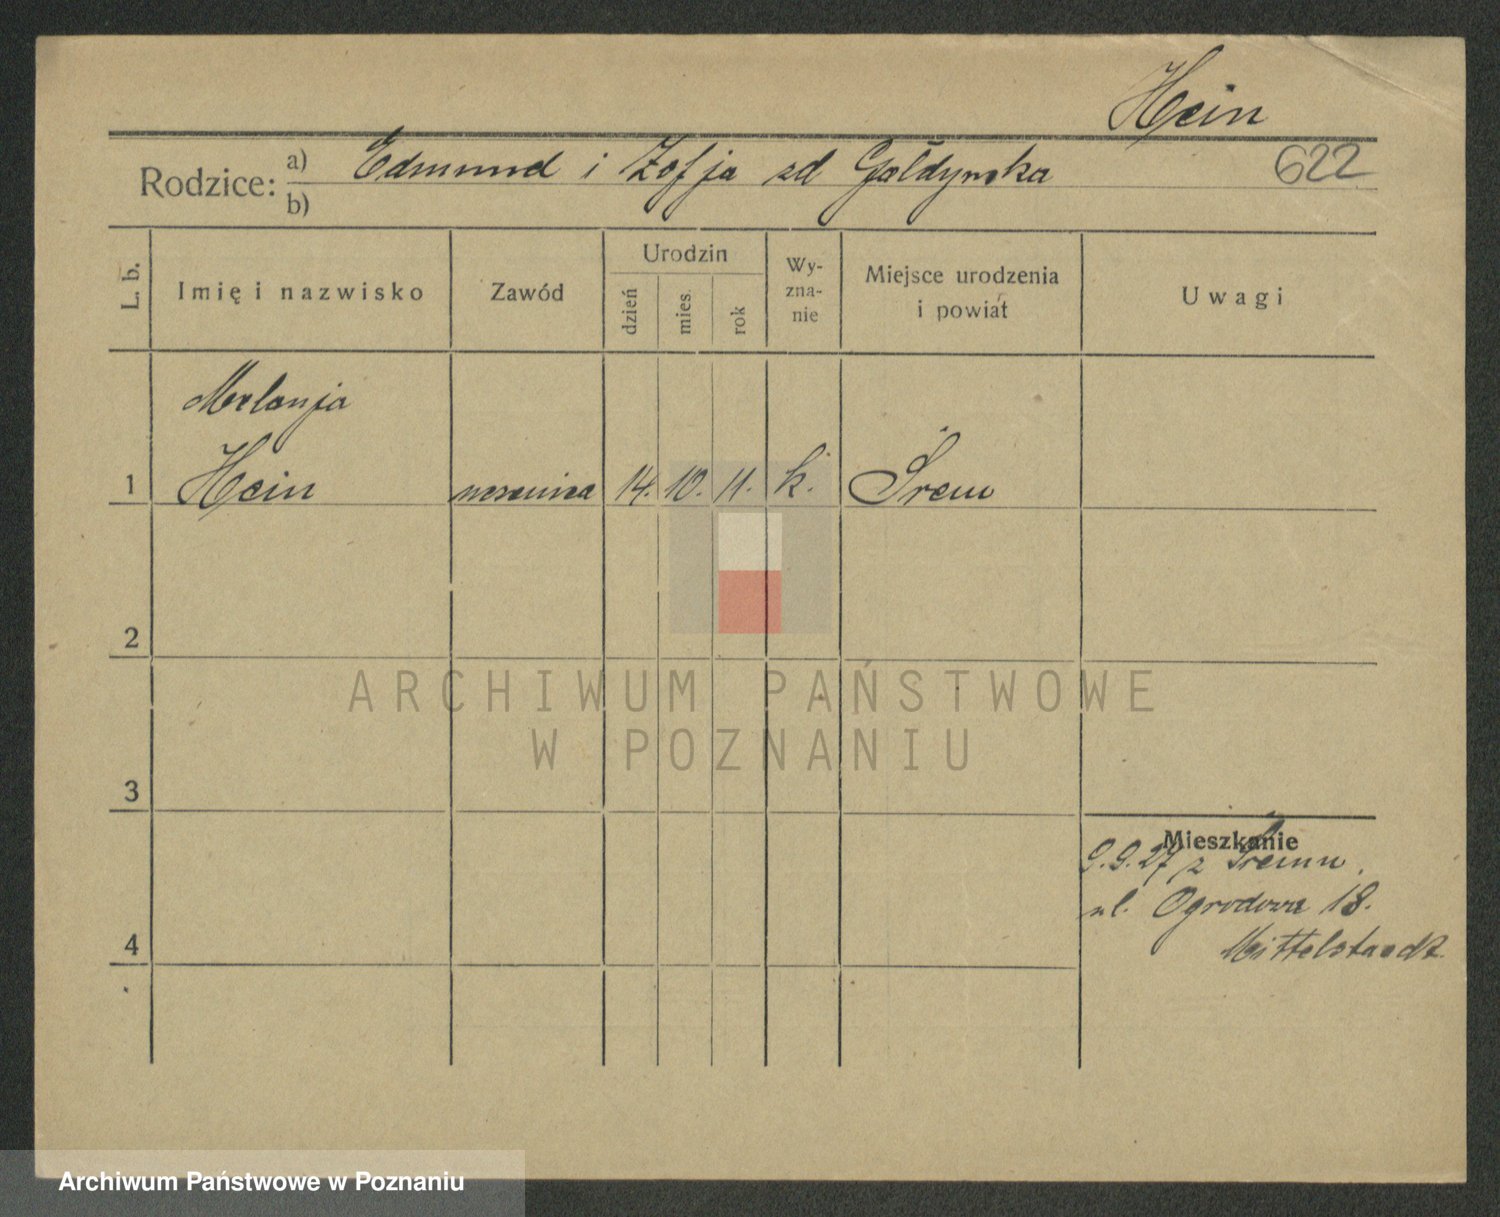 Hein
622
Rodzice: a) Edmund i Zofja zd Gałdyńska
b)
L. b.
Imię i nazwisko
Zawód
Urodzin
dzień
mies.
rok
Wy-
zna-
nie
Miejsce urodzenia
i powiat
Uwagi
Melanja
1 Hein uczenica 14. 10. 11. k. Śrem
2
3
4
Mieszkanie
9.9.27 z Śremu,
ul. Ogrodowa 18.
Mittelstaedt
ARCHIWUM PAŃSTWOWE
W POZNANIU
Archiwum Państwowe w Poznaniu